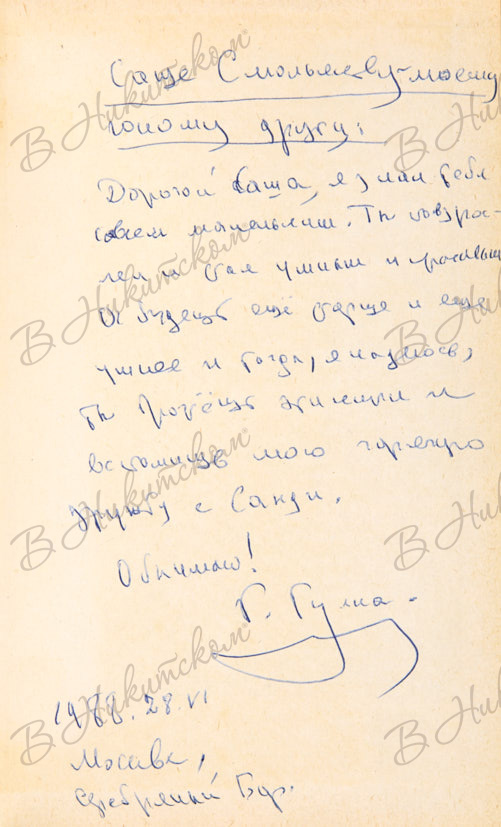 Саше Смольякову – моему
юному другу:
Дорогой Саша, я знал тебя
совсем маленьким. Ты повзрос-
лел и стал умным и красивым
И будешь ещё старше и ещё
умнее и тогда, я надеюсь,
ты прочтёшь эти книги и
вспомнишь мою горячую
дружбу с Санди.
Обнимаю!
Г. Гулиа.
28.VI
Москва,
Серебряный Бор.
В Никитском
В Никитском
В Никитском
В Никитском
В Никитском
В Никитском
В Никитском
В Никитском